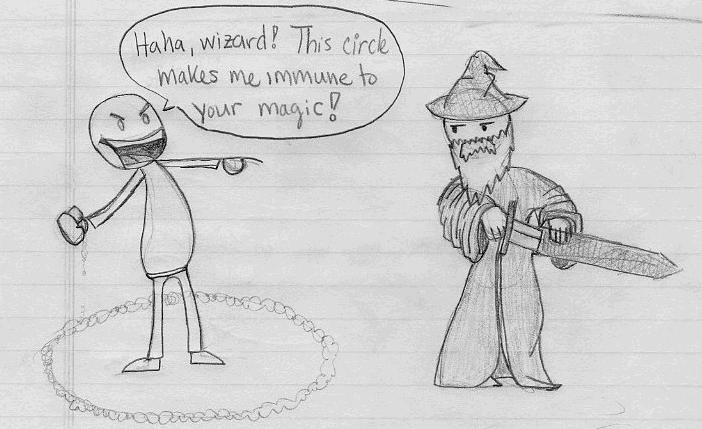 Haha, wizard! This circle
makes me immune to
your magic!